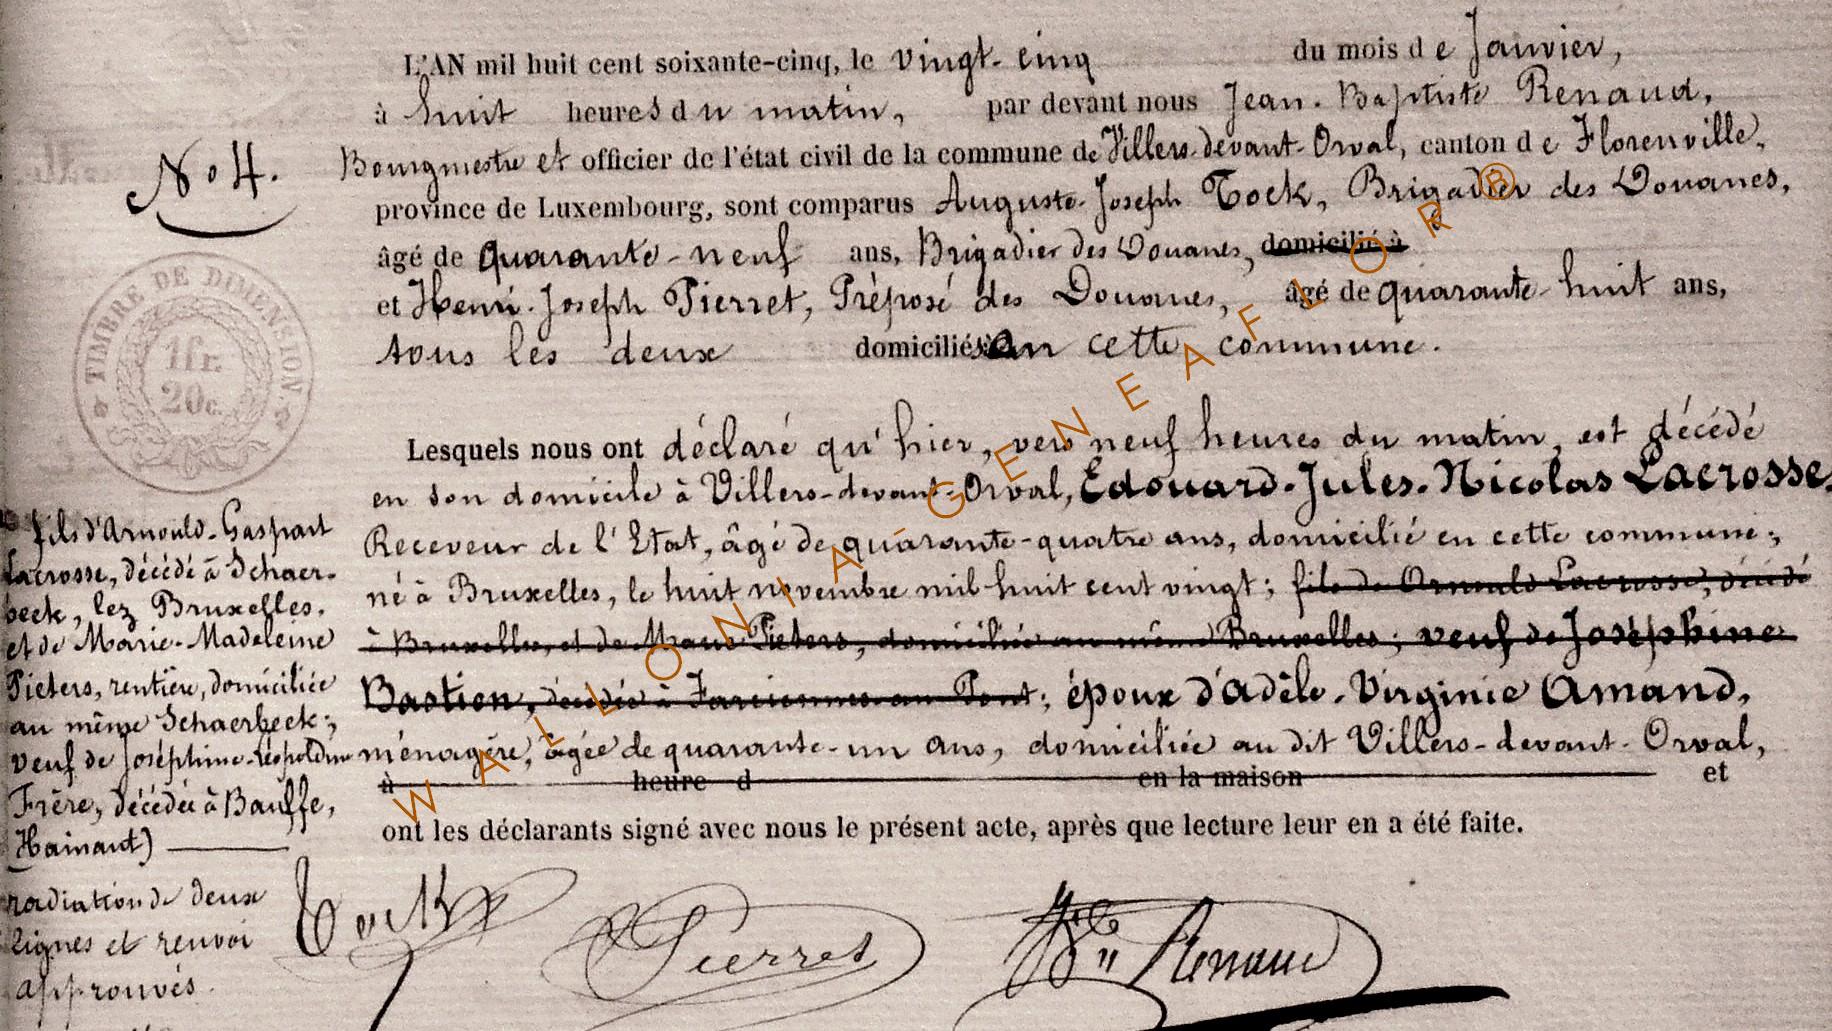 L'AN mil huit cent soixante-cinq, le vingt-cinq du mois de Janvier,
à huit heures du matin, par devant nous Jean-Baptiste Renaud,
No 4.
Bourgmestre et officier de l'état civil de la commune de Villers-devant-Orval, canton de Florenville,
province de Luxembourg, sont comparus Auguste-Joseph Tock, Brigadier des Douanes,
âgé de quarante-neuf ans, Brigadier des Douanes, domicilié à
et Henri-Joseph Pierret, Préposé des Douanes, âgé de quarante-huit ans,
tous les deux domiciliés en cette commune.
TIMBRE DE DIMENSION.
1fr.
20c.
Lesquels nous ont déclaré qu'hier, vers neuf heures du matin, est décédé
en son domicile à Villers-devant-Orval, Edouard-Jules-Nicolas Lacrosse,
Receveur de l'Etat, âgé de quarante-quatre ans, domicilié en cette commune;
né à Bruxelles, le huit novembre mil-huit cent vingt; fils de Arnould Lacrosse, décédé
à Bruxelles, et de Marie Pieters, domiciliée au même Bruxelles; veuf de Joséphine
Bastien, décédée à Farciennes au Pont; époux d'Adèle-Virginie Amand,
ménagère, âgée de quarante-un ans, domiciliée au dit Villers-devant-Orval,
à heure d en la maison et
ont les déclarants signé avec nous le présent acte, après que lecture leur en a été faite.
fils d'Arnould-Gaspart
Lacrosse, décédé à Schaer-
beek, lez Bruxelles.
et de Marie-Madeleine
Pieters, rentière, domiciliée
au même Schaerbeek;
veuf de Joséphine-Léopoldine
Frère, décédée à Bauffe,
Hainaut)
radiation de deux
lignes et renvoi
approuvés.
Tock
Pierret
Renaud
WALLONIA-GENEAFLOR®